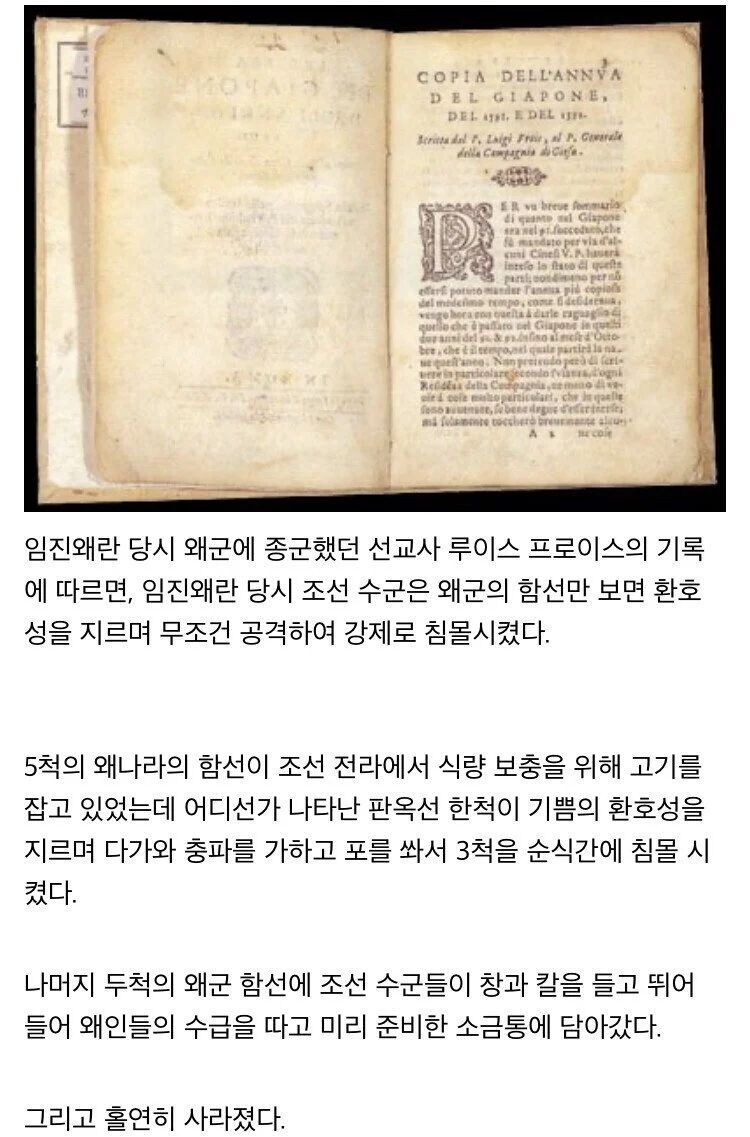 COPIA DELL'ANNVA
DEL GIAPONE,
DEL 1591. E DEL 1592.
Scritta dal P. Luigi Frois, al P. Generale
della Compagnia di Giesu.
PER vn breue sommario
di quanto nel Giapone
era nel 91. succeduto, che
fù mandato per via d'al-
cuni Cinesi V. P. hauerà
inteso lo stato di queste
parti; nondimeno per nō
essersi potuto mandar l'annua più copiosa
del medesimo tempo, come si desideraua,
vengo hora con questa à darle ragguaglio di
quello che è passato nel Giapone in questi
due anni del 91. & 92. insino al mese d'Otto-
bre, che è il tempo, nel quale partirà la na-
ue quest'anno. Non pretendo però di scri-
uere in particolare secondo l'vsanza, d'ogni
Residēza della Compagnia, ne meno di ve-
nir à cose molto particolari, che in queste
sono auuenute, se bene degne d'esser intese;
mà solamente toccherò breuemente alcu-
A 2 ne cose
임진왜란 당시 왜군에 종군했던 선교사 루이스 프로이스의 기록
에 따르면, 임진왜란 당시 조선 수군은 왜군의 함선만 보면 환호
성을 지르며 무조건 공격하여 강제로 침몰시켰다.
5척의 왜나라의 함선이 조선 전라에서 식량 보충을 위해 고기를
잡고 있었는데 어디선가 나타난 판옥선 한척이 기쁨의 환호성을
지르며 다가와 충파를 가하고 포를 쏴서 3척을 순식간에 침몰 시
켰다.
나머지 두척의 왜군 함선에 조선 수군들이 창과 칼을 들고 뛰어
들어 왜인들의 수급을 따고 미리 준비한 소금통에 담아갔다.
그리고 홀연히 사라졌다.